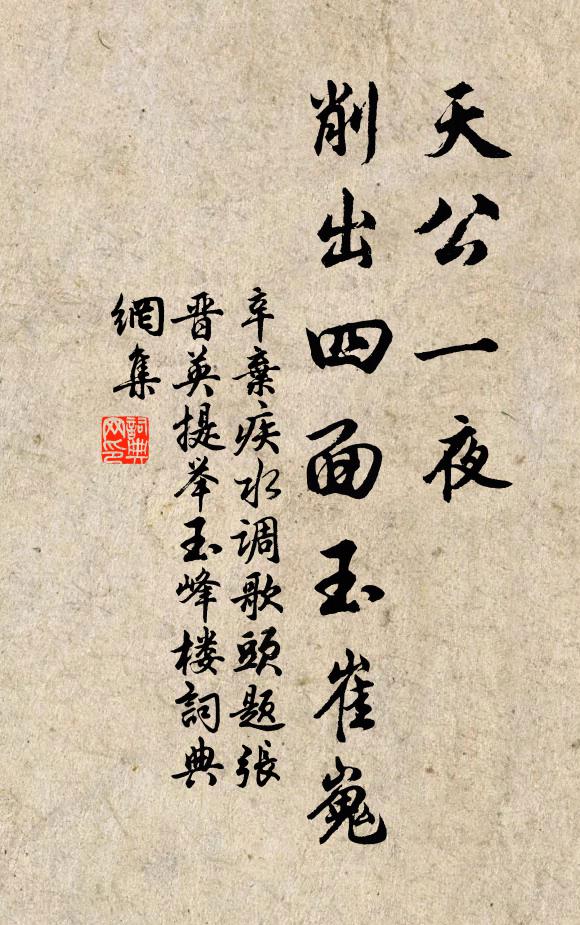 天公一夜
削出四面玉崔嵬
辛棄疾水调歌頭题張
晋英提举玉峰楼詞典
網集
詞典網印